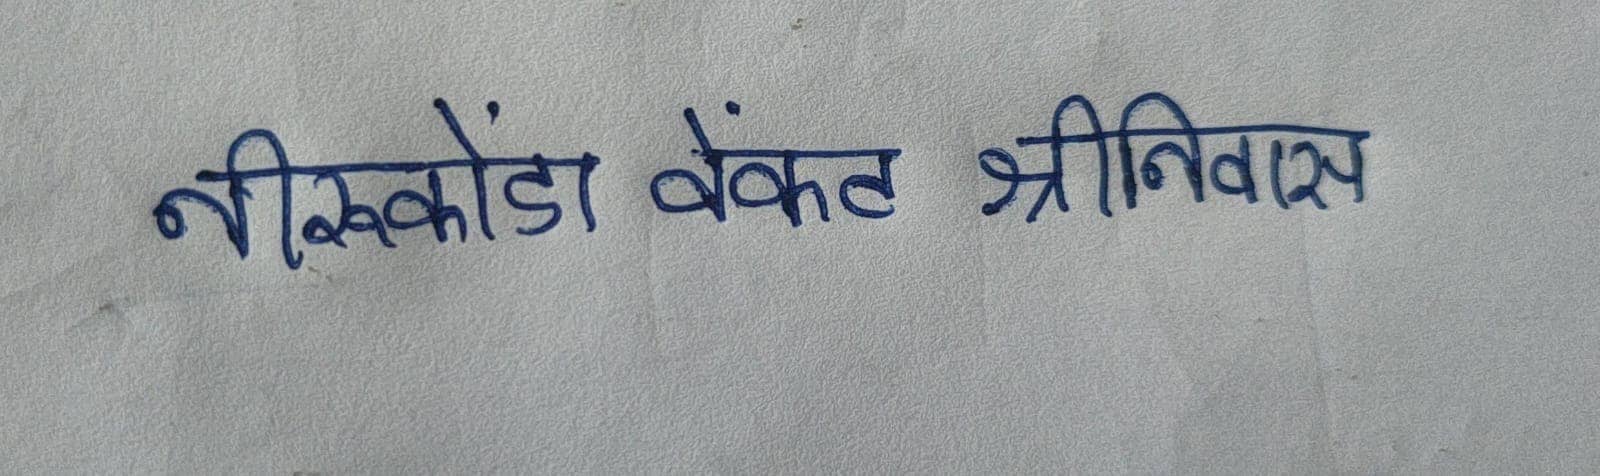 नीरूकोंडा वेंकट श्रीनिवास